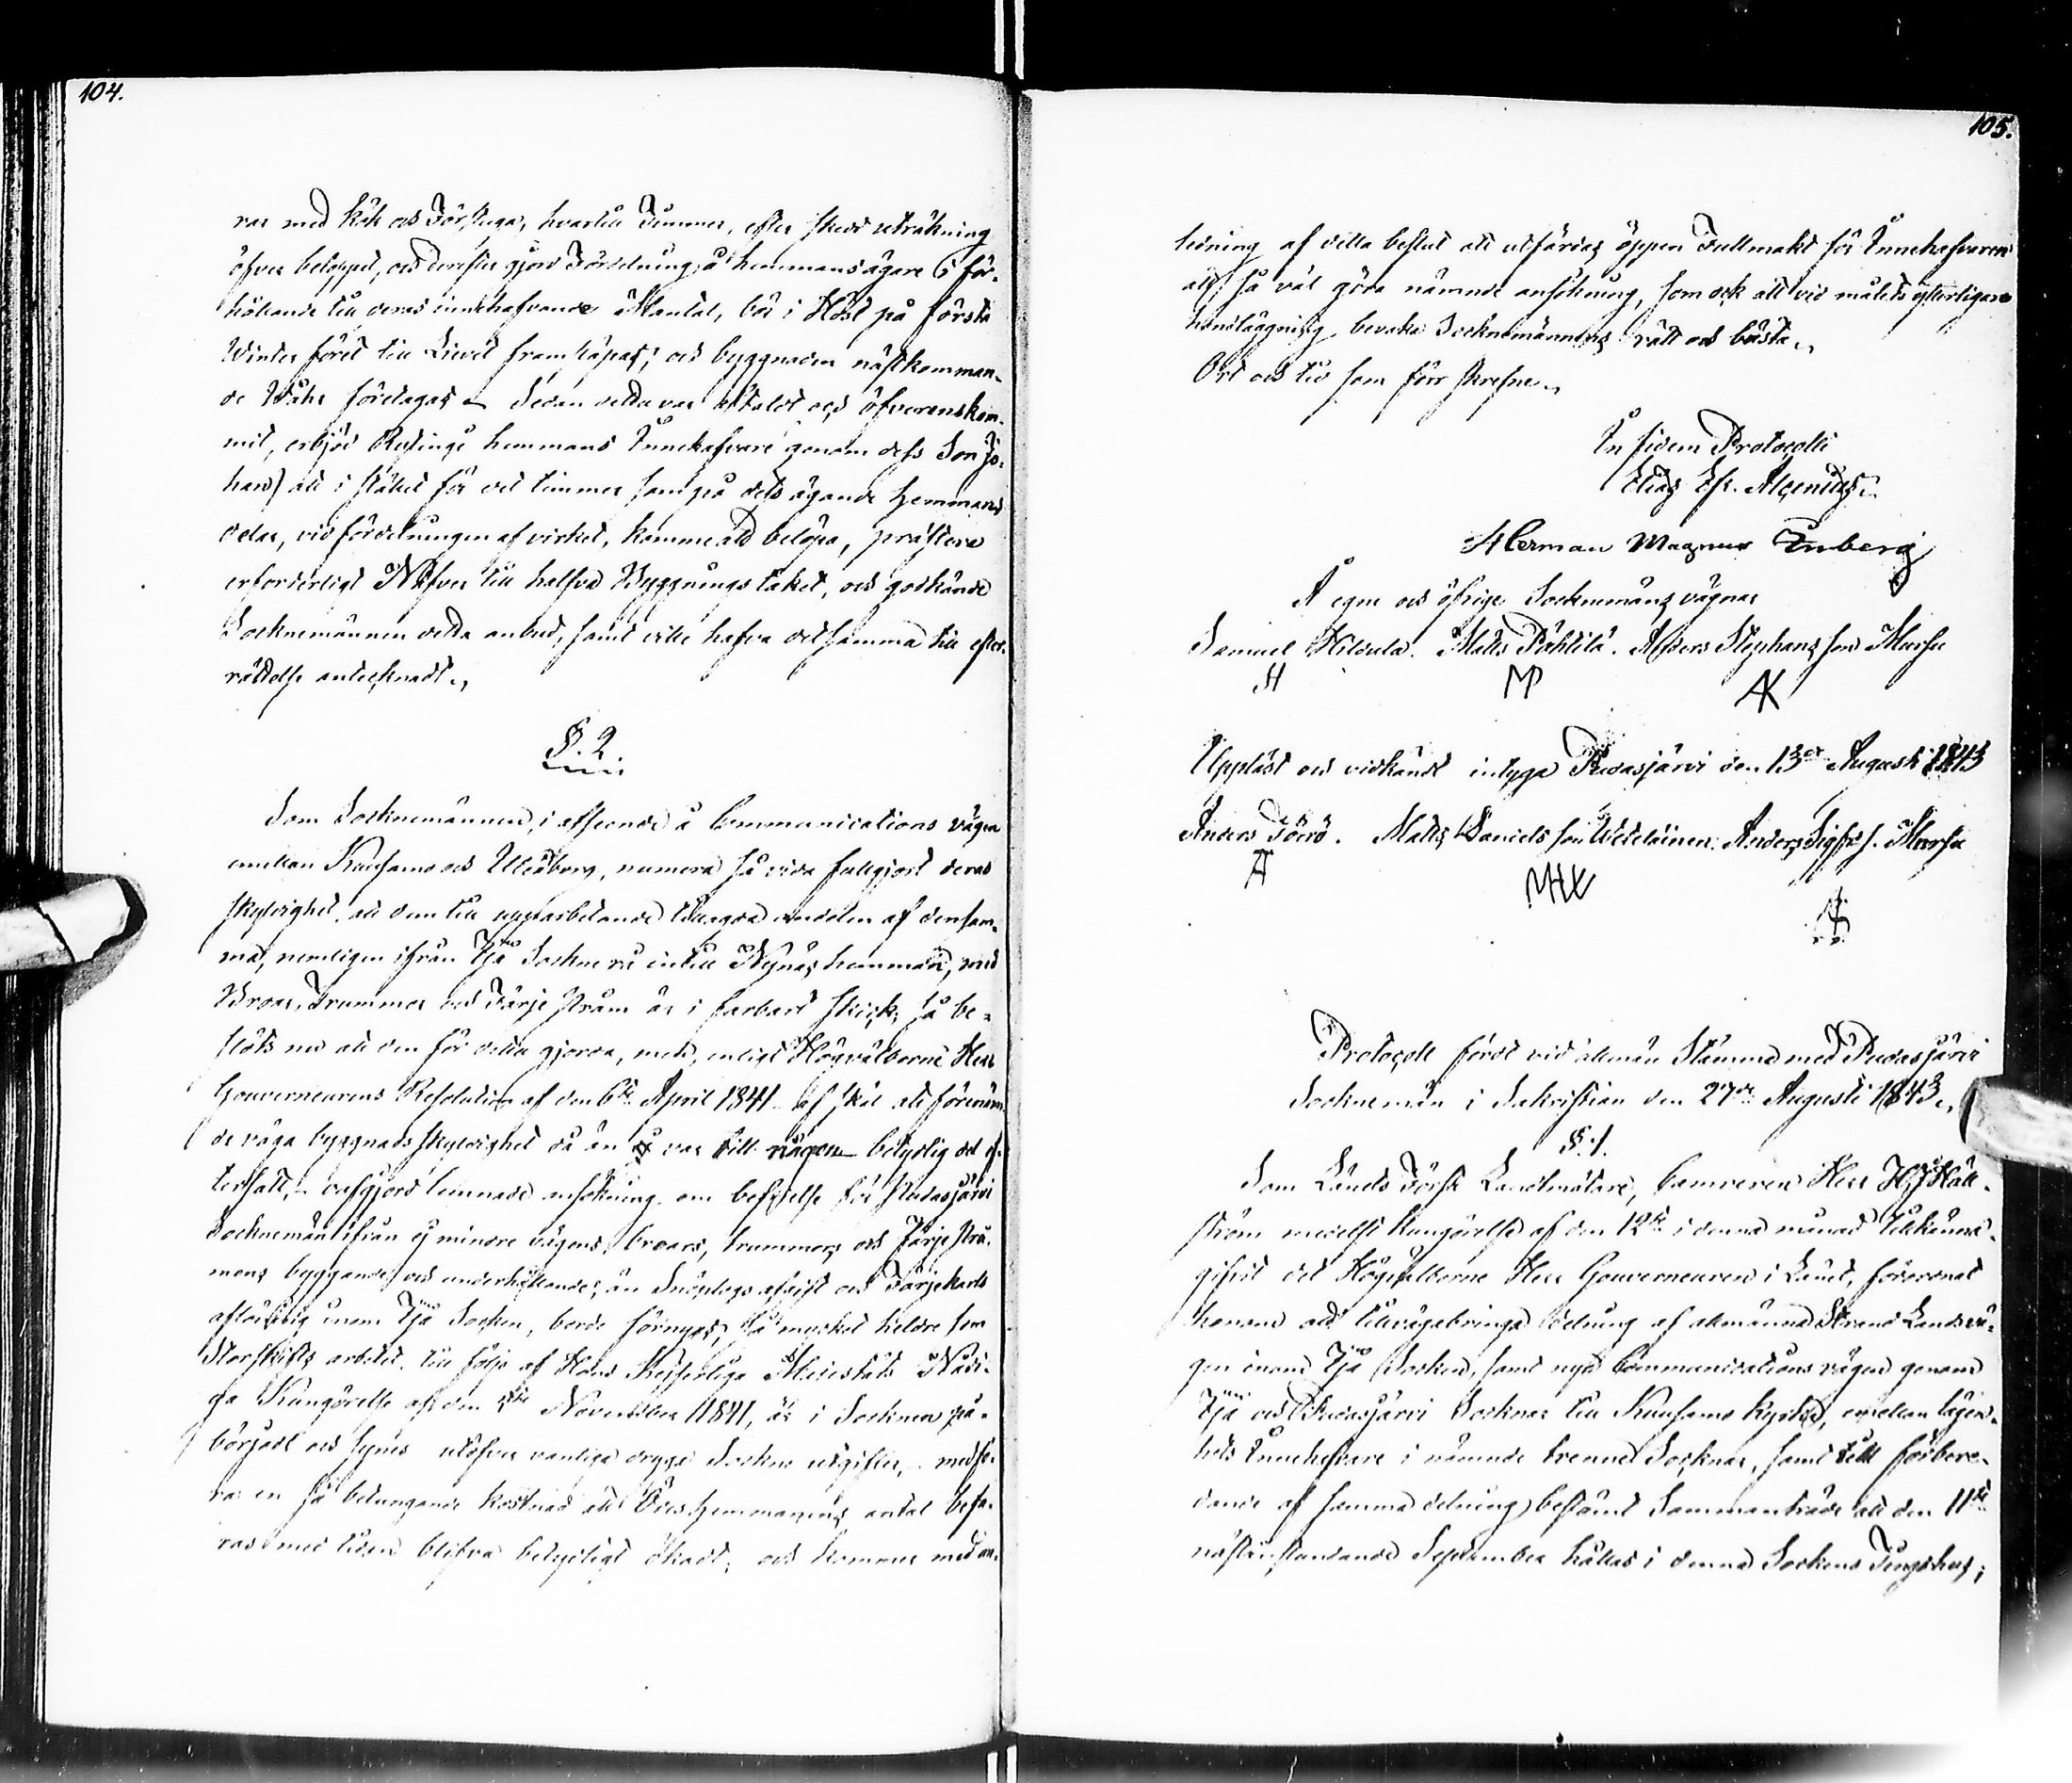 104.
ras med Kök och Förstuga, hvartill Timmer, efter skedd uträkning
öfver beloppet, och derefter gjord Fördelning å hemmansägare i för-
hållande till deras innehafvande Mantal, bör i Höst på första
Winter föret till Stället framköras; och byggnaden nästkomman-
de Wåhr företagas. Sedan detta var aftaldt och öfverenskom-
mit, erbjöd hemmans Innehafvare genom dess Son Jo-
han) att i stället för det timmer som på dess ägande hemmans
delar, vid fördelningen af virket, komme att belöpa, prestera
erforderligt Näfver till halfva Byggnings taket, och godkände
Socknemännen detta anbud, samt ville hafva det samma till efter-
rättelse antecknadt.
§. 2.
Som Socknemännen, i afseende å Communications vägen
emellan Kuusamo och Uleåborg, numera så vida fullgjort deras
skyldighet, att den till upparbetande tillagda andelen af densam-
ma, nemligen ifrån Ijo Sockne rå intill Kynäs hemman, med
Broar, Trummor och Färje Pråm är i farbart skick; så be-
slöts nu att den för detta gjorda, men, enligt Högvälborne Herr
Gouverneurens Resolution af den 6te April 1841 af skäl att förenäm-
de väga byggnads skyldighet då än var till någon betydlig del ef-
tersatt, ogjord lemnade ansökning om befrielse för Pudasjärvi
Socknemän ifrån ej mindre vägens, broars, trummors och Färje prå-
mens byggande och underhållande, än Snöplogs afgift och Färjekarls
aflöning inom Ijo Socken, borde förnyas, så mycket heldre som
Storskiftes arbetet till följe af Hans Kejserliga Majestäts Nådi-
ga Kungörelse af den November 1841, är i Socknen på-
börjadt och synes utöfver vanliga dryga Sockne utgifter, medfö-
ra en så betungande kostnad att Ödes hemmanens antal befa-
ras med tiden blifva betydligt ökadt; och kommer med an-
105.
ledning af detta beslut att utfärdas öppen Fullmakt för Innehafvaren
att, så väl göra nämnde ansökning, som ock att vid målets ytterligare
handläggning bevaka Socknemännens rätt och bästa.
Ort och tid som förr skrefne.
In fidem Protocolli
Elias Alcenius.
Herman Magnus Enberg
Å egne och öfrige Socknemäns vägnar
Samuel Hildula. Matts Pähtilä. Anders Stephans son Kursu
SH MP AK
Uppläst och vidkändt intyga Pudasjärvi den 13de Augusti 1843
Anders Törrö. Matts Daniels son Wetelainen. Anders Sigfrs s. Kursu
Protocoll fördt vid allmän Stämma med Pudasjärvi
Socknemän i Sakristian den 27de Augusti 1843.
§. 1.
Som Länets Förste Landtmätare, Camreren Herr Häll-
ström medelst Kungörelse af den 12te i denna månad tillkänna-
gifvit det Högvälborne Herr Gouverneuren i Länet, förordnat
honom att tillvägabringa delning af allmänna Strand Landsvä-
gen inom Ijo Socken, samt nya Communications vägen genom
Ijo och Pudasjärvi Socknar till Kuusamo kyrka, emellan lägen-
hets Innehafvare i nämnde trenne Socknar, samt till förbere-
dande af samma delning bestämt Sammanträde att den 11te
nästinstundande September hållas i denna Sockens Tingshus;